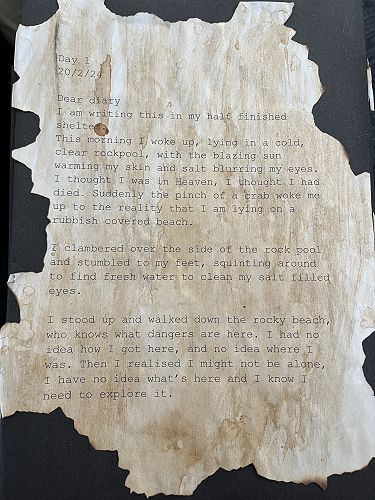 Day 1
20/2/24
Dear diary
I am writing this in my half finished
shelter
This morning I woke up, lying in a cold,
clear rockpool, with the blazing sun
warming my skin and salt blurring my eyes.
I thought I was in Heaven, I thought I had
died. Suddenly the pinch of a crab woke me
up to the reality that I am lying on a
rubbish covered beach.
I clambered over the side of the rock pool
and stumbled to my feet, squinting around
to find fresh water to clean my salt filled
eyes.
I stood up and walked down the rocky beach,
who knows what dangers are here. I had no
idea how I got here, and no idea where I
was. Then I realised I might not be alone,
I have no idea what's here and I know I
need to explore it.